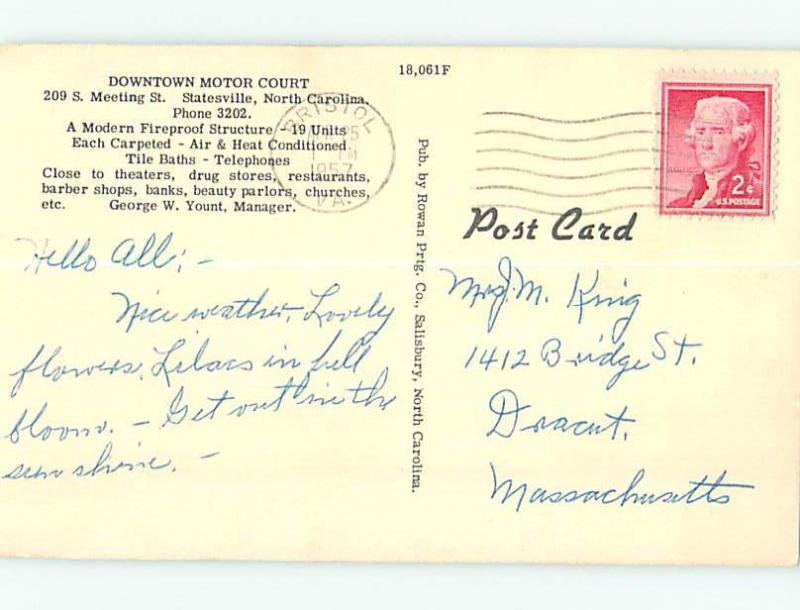 DOWNTOWN MOTOR COURT
209 S. Meeting St. Statesville, North Carolina.
Phone 3202.
A Modern Fireproof Structure - 19 Units
Each Carpeted - Air & Heat Conditioned
Tile Baths - Telephones
Close to theaters, drug stores, restaurants,
barber shops, banks, beauty parlors, churches,
etc. George W. Yount, Manager.
Hello All: -
Nice weather, Lovely
flowers. Lilacs in full
bloom. - Get out in the
sun shine. -
18,061F
Pub. by Rowan Prtg. Co., Salisbury, North Carolina.
BRISTOL
PM
1957
VA.
2¢
U.S. POSTAGE
Post Card
Mrs. J. M. King
1412 Bridge St.
Dracut,
Massachusetts